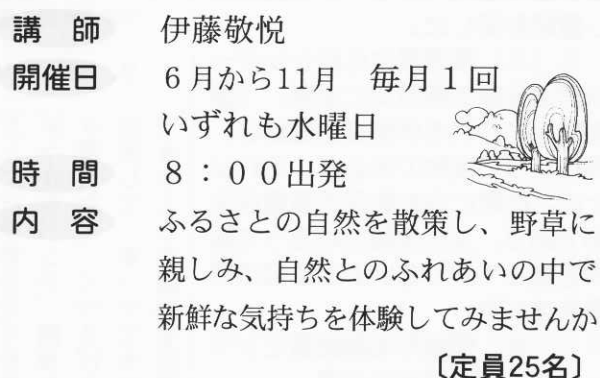 講　師　伊藤敬悦
開催日　６月から11月　毎月１回
いずれも水曜日
時　間　８：００出発
内　容　ふるさとの自然を散策し、野草に
親しみ、自然とのふれあいの中で
新鮮な気持ちを体験してみませんか
〔定員25名〕